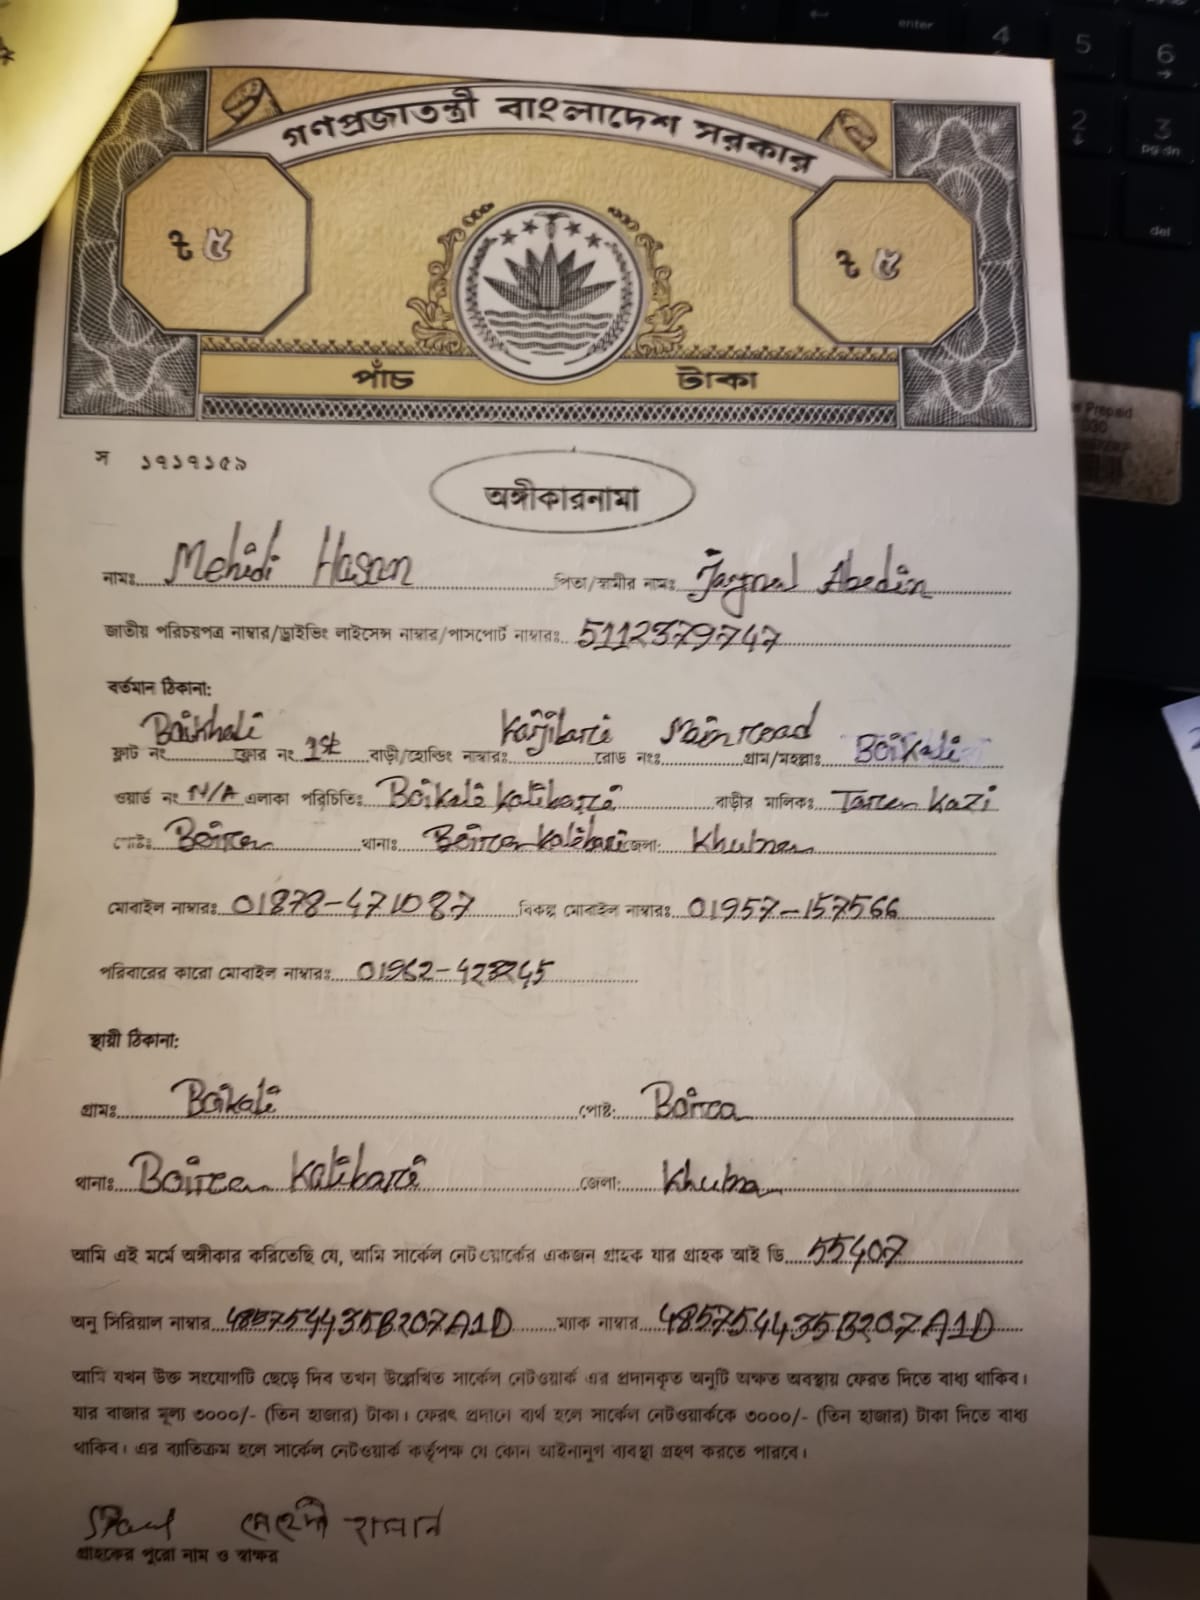 গণপ্রজাতন্ত্রী বাংলাদেশ সরকার
৳ ৫ ৳ ৫
পাঁচ টাকা
স ১৭১৭১৫৯
অঙ্গীকারনামা
নামঃ Mehidi Hasan পিতা/স্বামীর নামঃ Jaynal Abedin
জাতীয় পরিচয়পত্র নাম্বার/ড্রাইভিং লাইসেন্স নাম্বার/পাসপোর্ট নাম্বারঃ 5112379747
বর্তমান ঠিকানা:
ফ্লাট নং Boikhali ফ্লোর নং 1st বাড়ী/হোল্ডিং নাম্বারঃ Kazibari রোড নংঃ Main road গ্রাম/মহল্লাঃ Boikali
ওয়ার্ড নং N/A এলাকা পরিচিতিঃ Boikali Kalibari বাড়ীর মালিকঃ Kazi
পোষ্টঃ Boira থানাঃ Boira Kalibari জেলা: Khulna
মোবাইল নাম্বারঃ 01878-471087 বিকল্প মোবাইল নাম্বারঃ 01957-157566
পরিবারের কারো মোবাইল নাম্বারঃ 01962-
স্থায়ী ঠিকানা:
গ্রামঃ Boikali পোষ্ট: Boira
থানাঃ Boira Kalibari জেলা: Khulna
আমি এই মর্মে অঙ্গীকার করিতেছি যে, আমি সার্কেল নেটওয়ার্কের একজন গ্রাহক যার গ্রাহক আই ডি 55407
অনু সিরিয়াল নাম্বার 485754435B207A1D ম্যাক নাম্বার 485754435B207A1D
আমি যখন উক্ত সংযোগটি ছেড়ে দিব তখন উল্লেখিত সার্কেল নেটওয়ার্ক এর প্রদানকৃত অনুটি অক্ষত অবস্থায় ফেরত দিতে বাধ্য থাকিব।
যার বাজার মূল্য ৩০০০/- (তিন হাজার) টাকা। ফেরৎ প্রদানে ব্যর্থ হলে সার্কেল নেটওয়ার্ককে ৩০০০/- (তিন হাজার) টাকা দিতে বাধ্য
থাকিব। এর ব্যতিক্রম হলে সার্কেল নেটওয়ার্ক কর্তৃপক্ষ যে কোন আইনানুগ ব্যবস্থা গ্রহণ করতে পারবে।
মেহেদী হাসান
গ্রাহকের পুরো নাম ও স্বাক্ষর
enter
4
5
6
2
3
pg dn
del
Prepaid